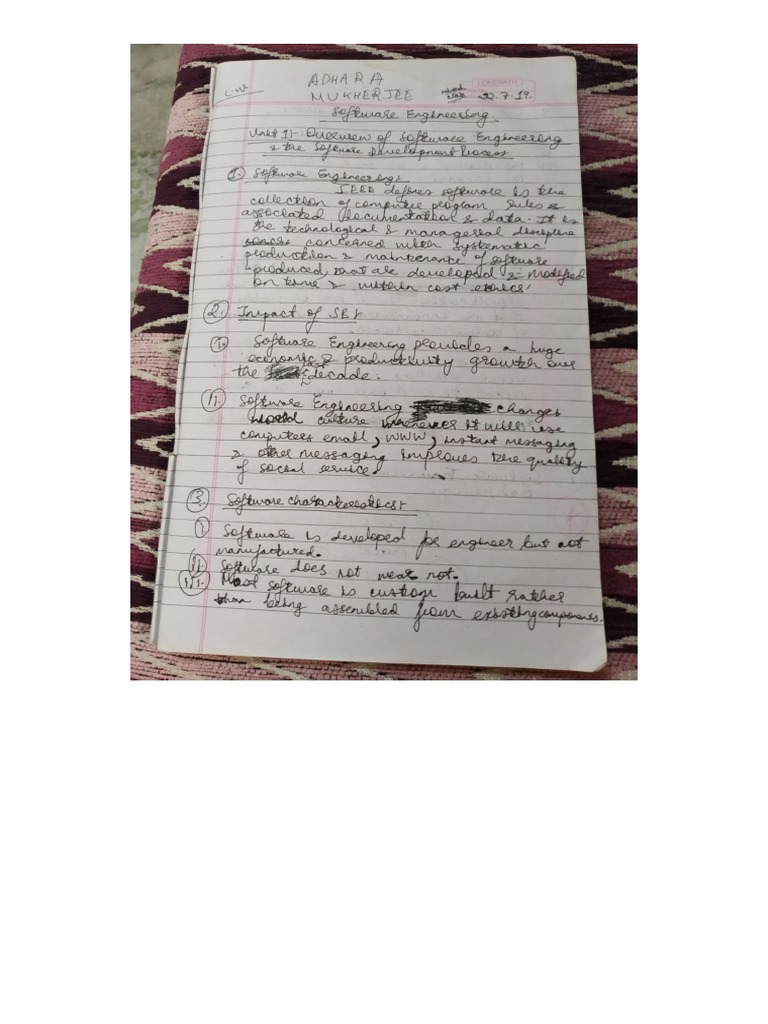 C.W
ADHARA
MUKHERJEE
LOKENATH
22.7.19.
Software Engineering
Unit 1:- Overview of Software Engineering
& the Software Development Process
1. Software Engineering:
IEEE defines software is the
collection of computer program rules &
associated documentation & data. It is
the technological & managerial discipline
concerned with systematic
production & maintenance of software
produced, that are developed & modified
on time & within cost
2. Impact of SE:
i. Software Engineering provides a huge
economic & productivity growth over
the last decade.
ii. Software Engineering changes
world culture it will use
computers email, WWW, instant messaging
& other messaging improves the quality
of social service.
3. Software characteristics:
i. Software is developed for engineer but not
manufactured.
ii. Software does not wear not.
iii. Most software is custom built rather
than being assembled from existing components.